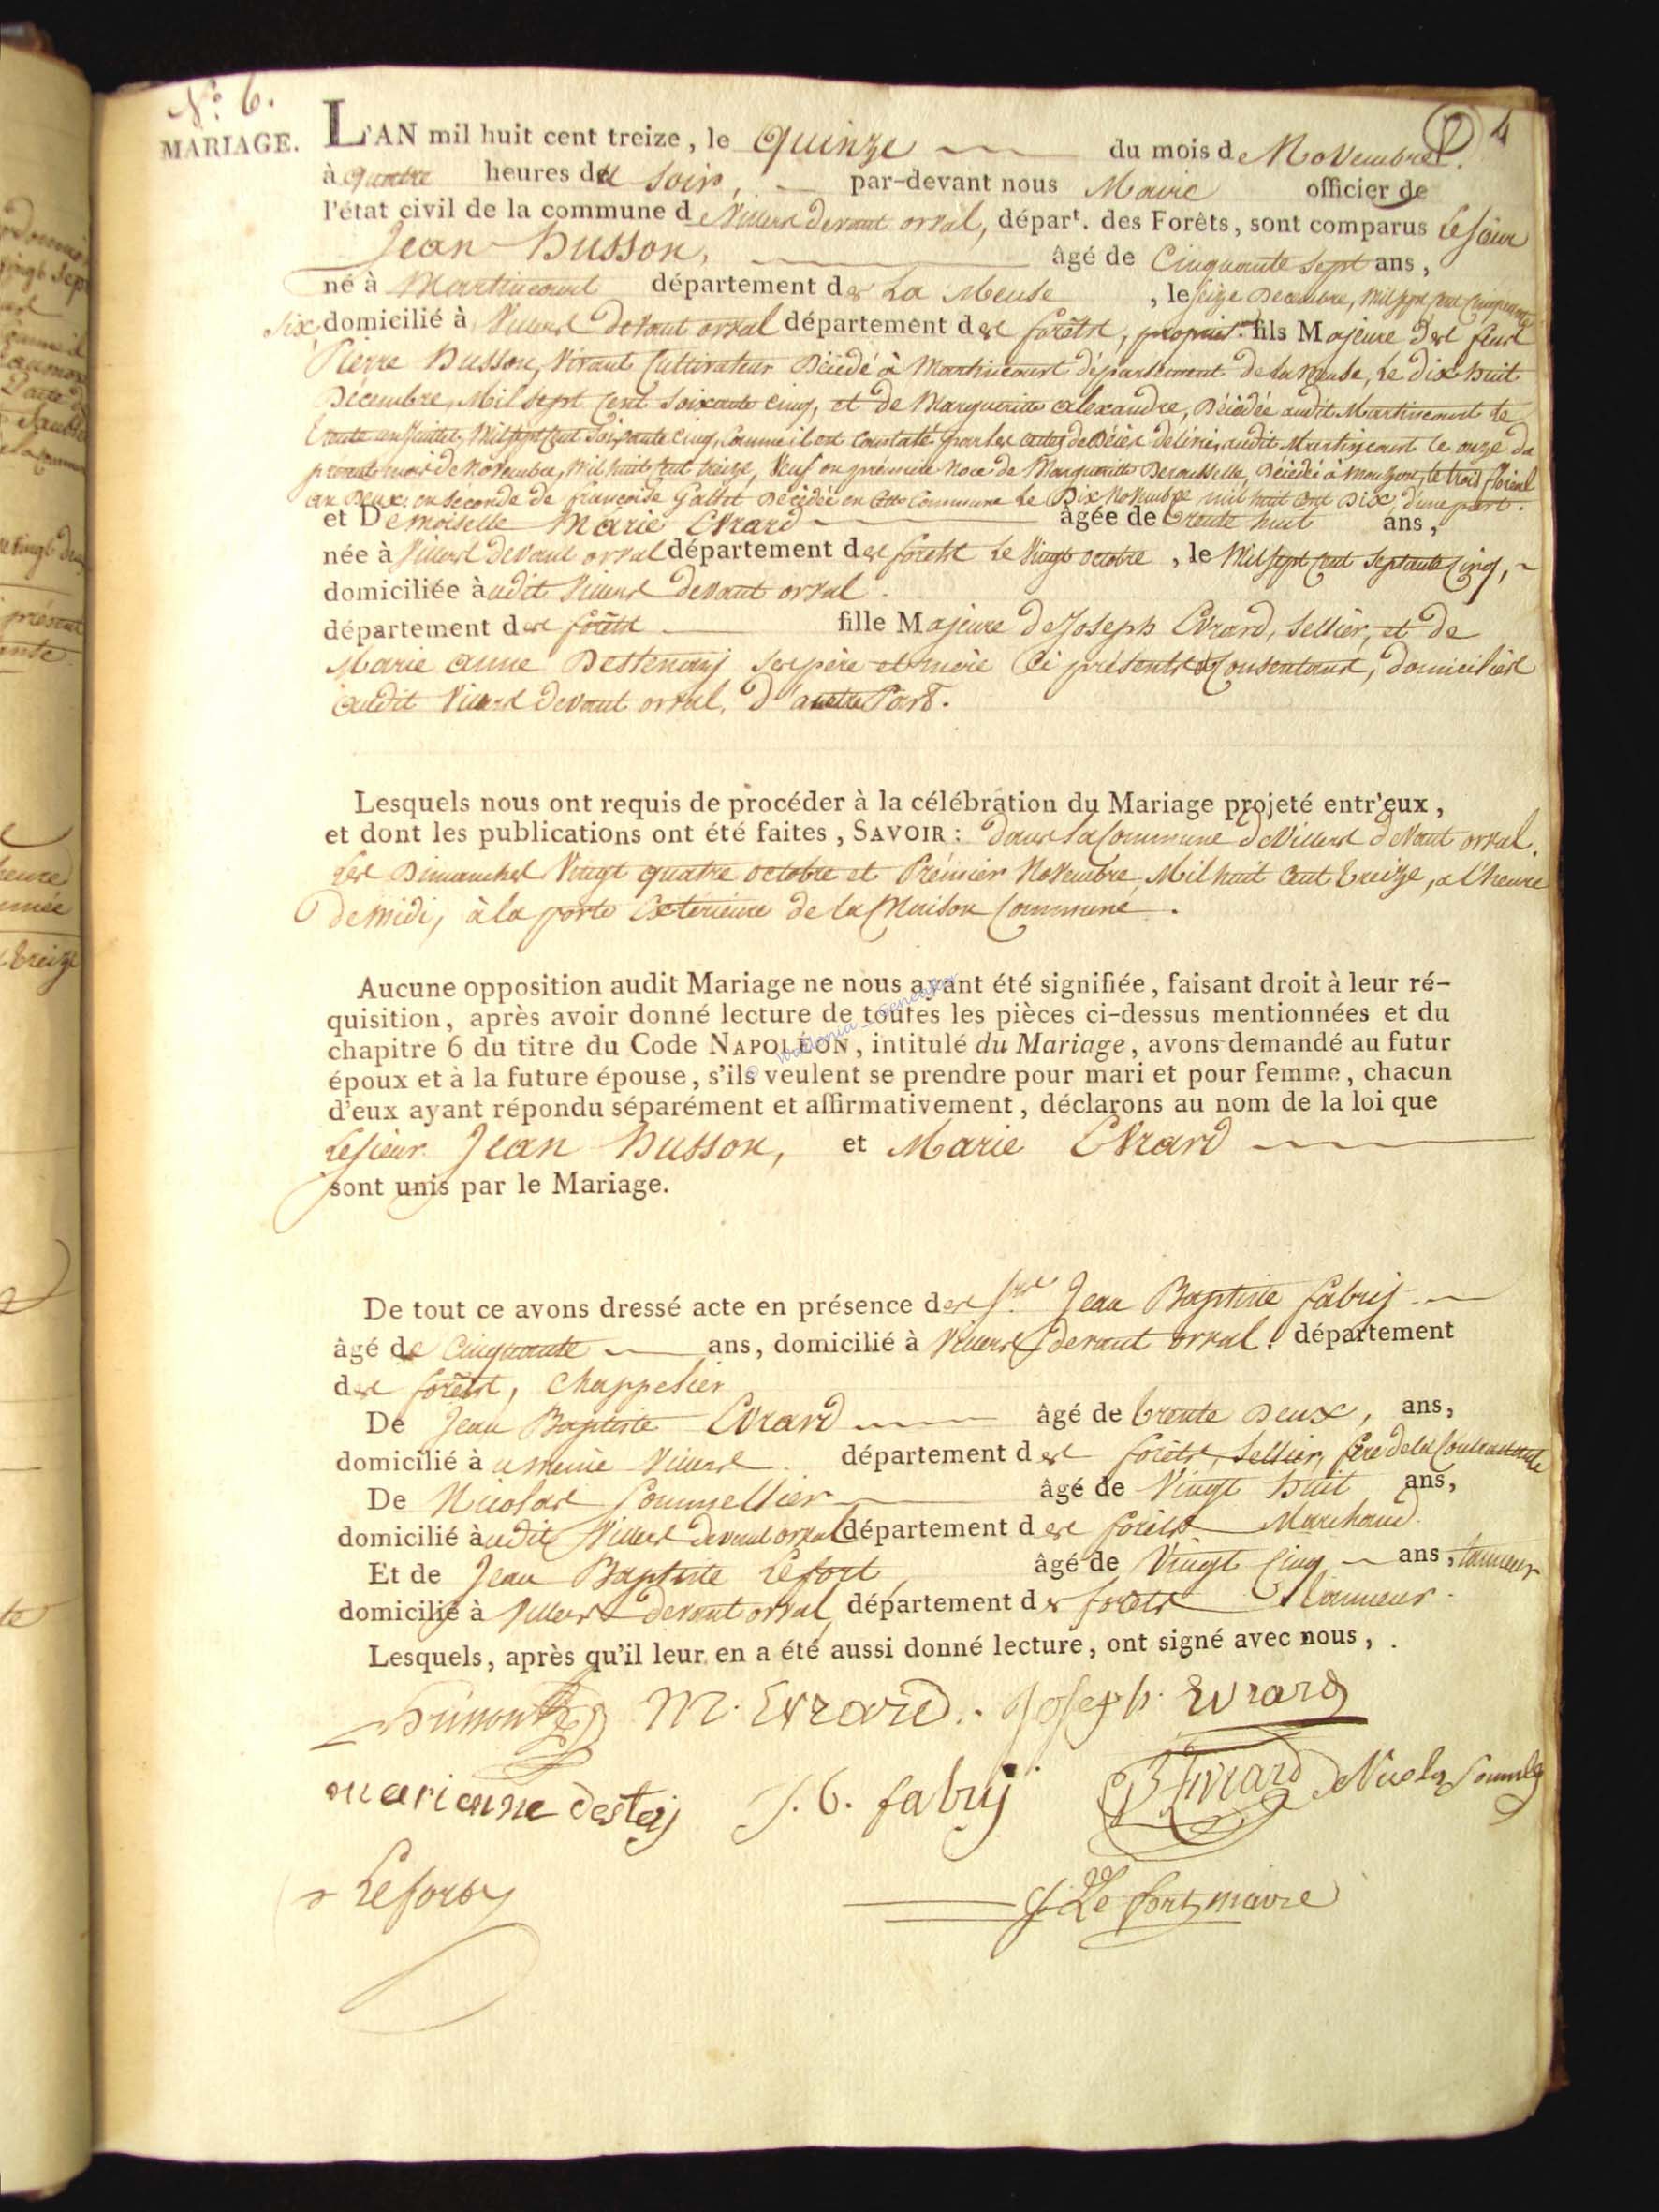 N.° 6.
4
MARIAGE.
L'AN mil huit cent treize, le quinze du mois de Novembre
à quatre heures du soir, par-devant nous Maire officier de
l'état civil de la commune de Villers devant orval, départ. des Forêts, sont comparus Le sieur
Jean Husson, âgé de Cinquante sept ans,
né à Martincourt département de La Meuse, le seize Decembre, mil sept cent cinquante
six, domicilié à Villers devant orval département des forêts, propriet.re fils Majeure des feus
Pierre Husson, vivant Cultivateur Décédé à Martincourt département de la Meuse, Le dix huit
Décembre, Mil sept Cent Soixante Cinq, et de Margueritte alexandre, Décédée audit Martincourt le
trente un Juillet, mil sept cent soixante cinq, Comme il est Constaté par les actes de Décès délivrés audit Martincourt le onze du
présent mois de Novembre, mil huit cent treize, Veuf en prémière Noce de Margueritte Derouselle, Décédée à Mouzon, le trois floréal
an Deux. en séconde de françoise Gallet Décédée en cette Commune Le Dix Novembre mil huit cent Dix, d'une part.
et Demoiselle Marie Evrard âgée de trente huit ans,
née à Villers devant orval département des forêts Le Vingt octobre, le Mil sept Cent Septante Cinq,
domiciliée audit Villers devant orval
département des forêts fille Majeure de Joseph Evrard, Sellier, et de
Marie anne Destenay ses père et mère Ci présents & Consentans, domiciliés
audit Villers devant orval, D'autre Part.
Lesquels nous ont requis de procéder à la célébration du Mariage projeté entr'eux,
et dont les publications ont été faites, SAVOIR : dans la Commune de Villers devant orval.
Les Dimanches Vingt quatre octobre et Prémier Novembre, Mil huit Cent treize, a l'heure
de midi, à la porte Extérieure de la Maison Commune.
Aucune opposition audit Mariage ne nous ayant été signifiée, faisant droit à leur ré-
quisition, après avoir donné lecture de toutes les pièces ci-dessus mentionnées et du
chapitre 6 du titre du Code NAPOLÉON, intitulé du Mariage, avons demandé au futur
époux et à la future épouse, s'ils veulent se prendre pour mari et pour femme, chacun
d'eux ayant répondu séparément et affirmativement, déclarons au nom de la loi que
Le sieur Jean Husson, et Marie Evrard
sont unis par le Mariage.
De tout ce avons dressé acte en présence des Srs Jean Baptiste fabrij
âgé de Cinquante ans, domicilié à Villers devant orval. département
des forêts, Chappelier
De Jean Baptiste Evrard âgé de trente Deux, ans,
domicilié à même Villers département des forêts, Sellier, frere de la Contractante
De Nicolas Sommellier âgé de Vingt huit ans,
domicilié audit Villers devant orval département des forêts Marchand.
Et de Jean Baptiste Lefort, âgé de Vingt Cinq ans, tanneur
domicilié à Villers devant orval, département des forêts tanneur.
Lesquels, après qu'il leur en a été aussi donné lecture, ont signé avec nous,
husson M. Evrard. Joseph Evrard
marienne destaij J. b. fabrij JB Evrard Nicolas
Lefort J: Le fort maire